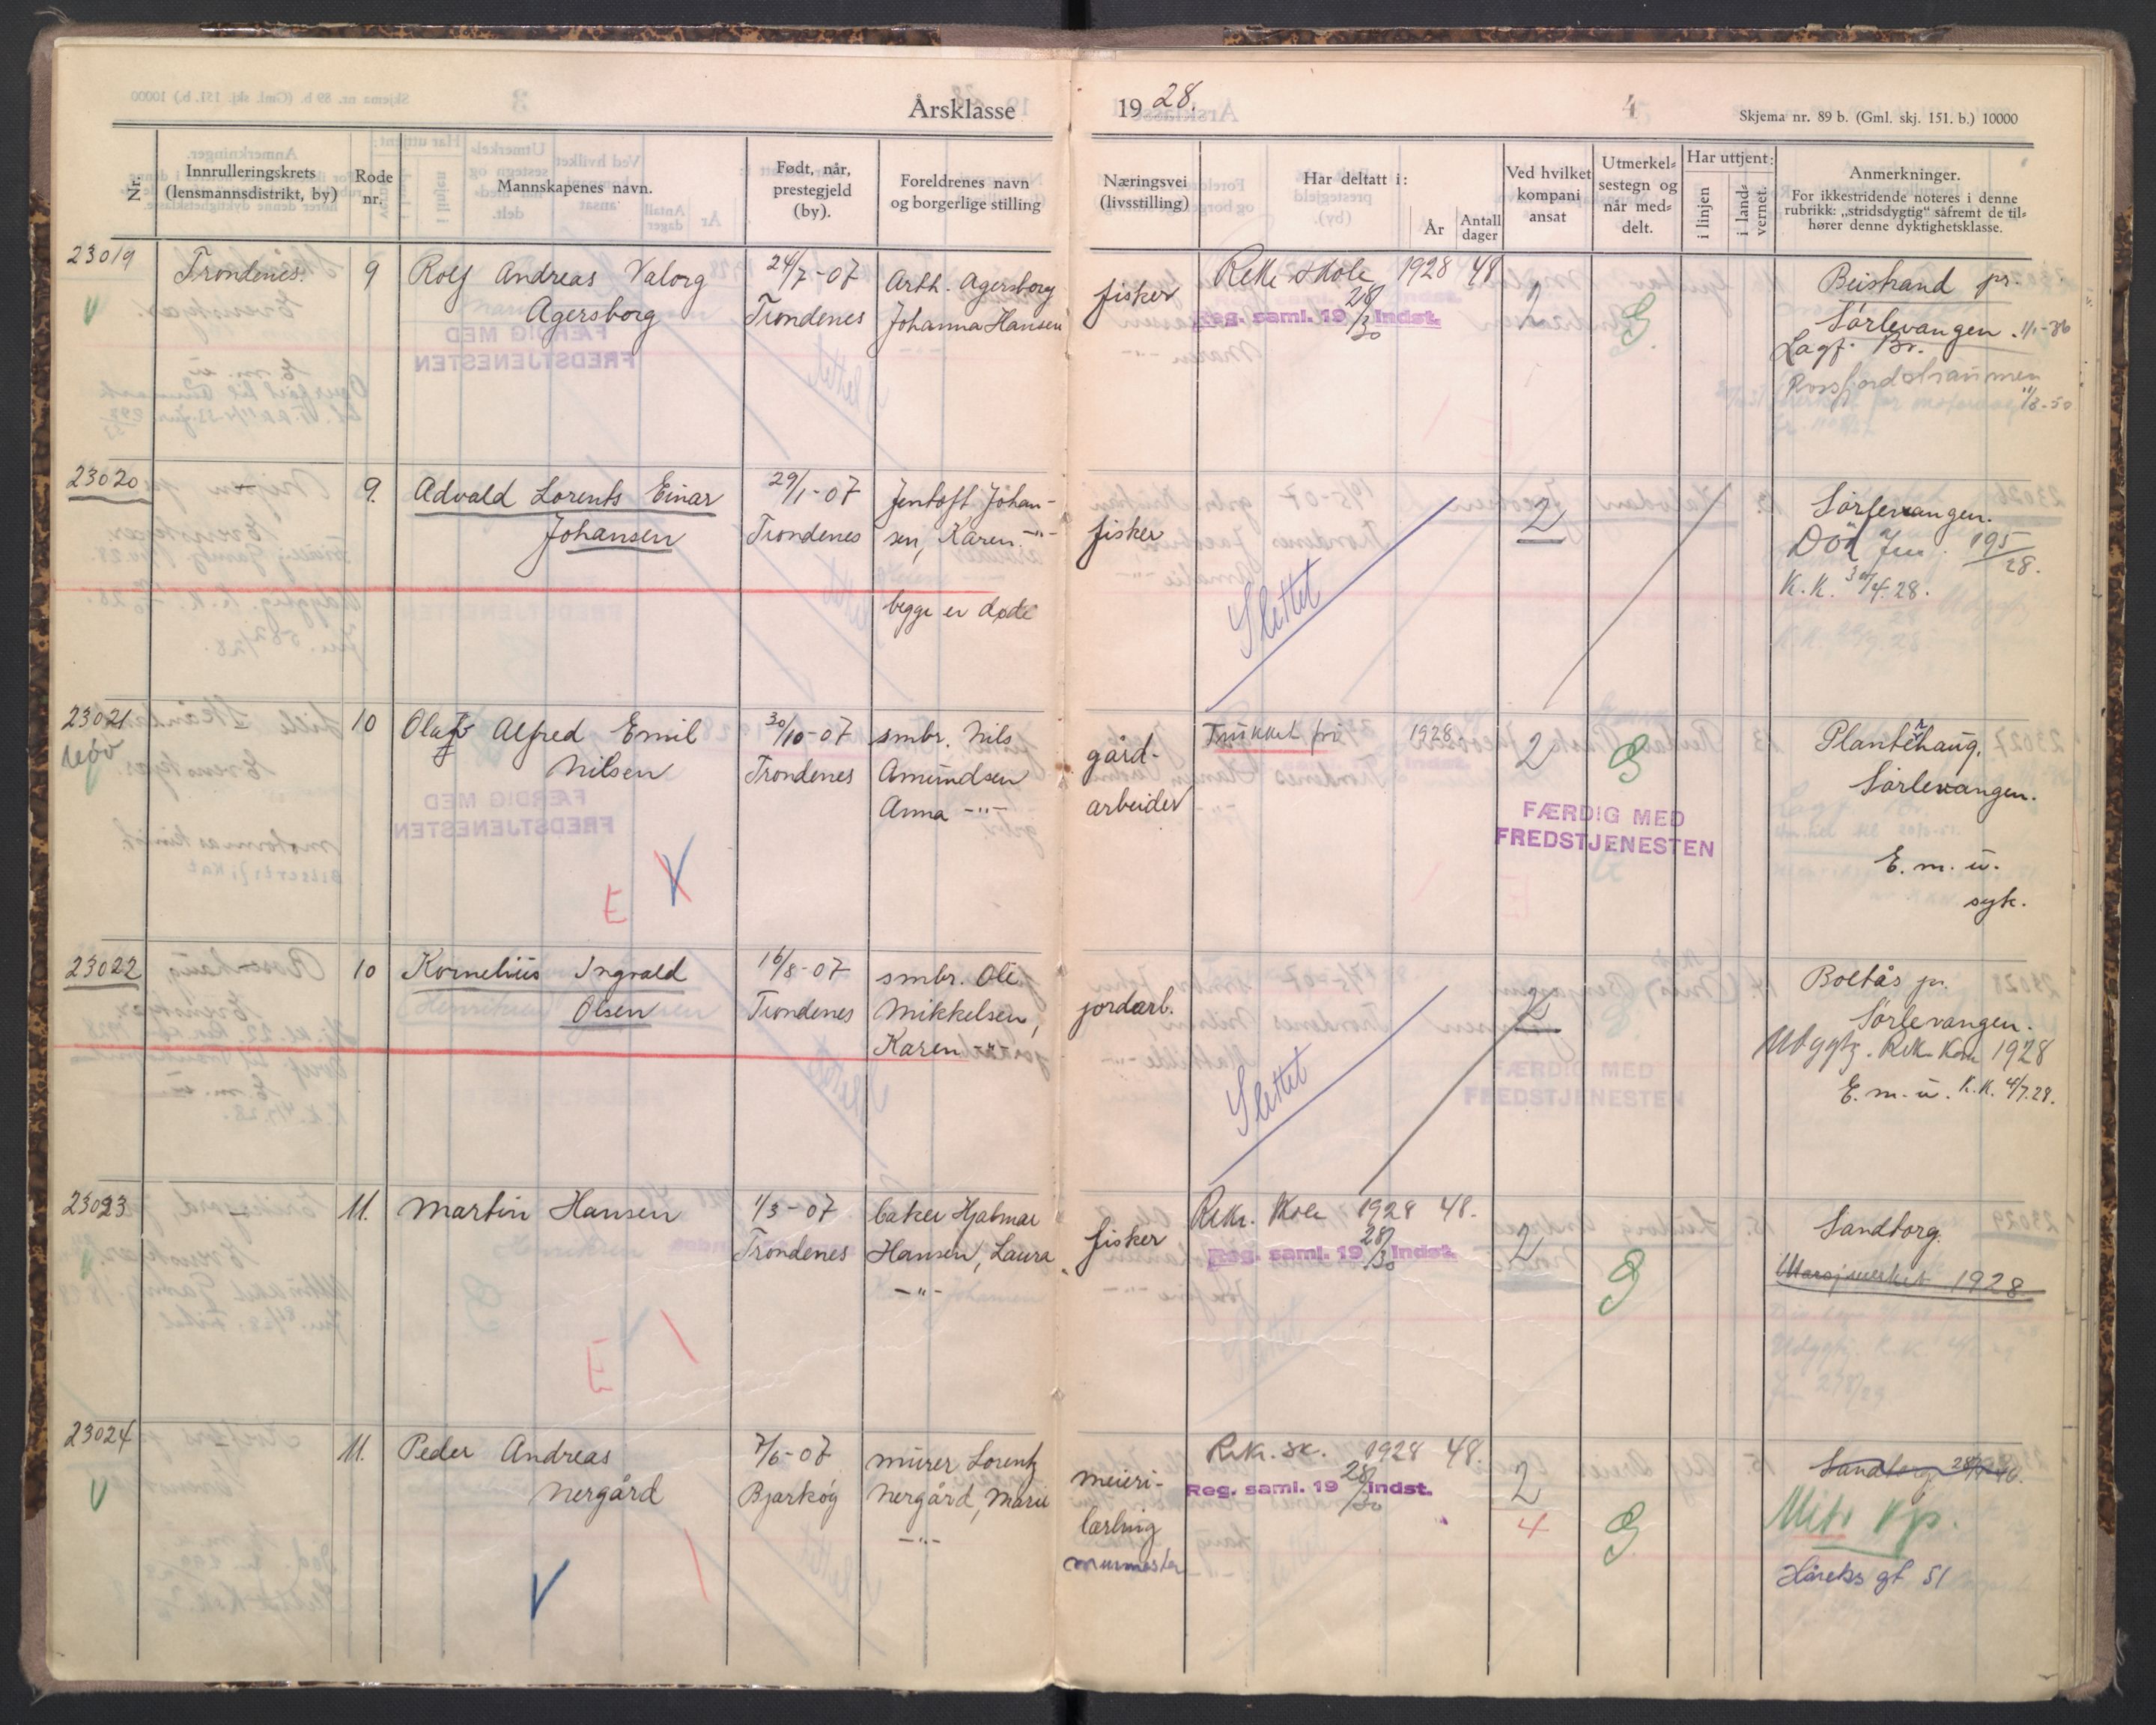 Årsklasse 1928.
4
Skjema nr. 89 b. (Gml. skj. 151. b.) 10000
Nr.
Innrulleringskrets
(lensmannsdistrikt, by)
Rode
nr.
Mannskapenes navn.
Født, når,
prestegjeld
(by).
Foreldrenes navn
og borgerlige stilling
Næringsvei
(livsstilling)
Har deltatt i:
År
Antall
dager
Ved hvilket
kompani
ansat
Utmerkel=
sestegn og
når med=
delt.
Har uttjent:
i linjen
i land=
vernet.
Anmerkninger.
For ikkestridende noteres i denne
rubrikk: „stridsdygtig" såfremt de til=
hører denne dyktighetsklasse.
23019
V
Trondenes.
9
Rolf Andreas Valorg
Agersborg
24/7-07
Trondenes
Arth. Agersborg
Johanna Hansen
fisker
Rekr skole 1928 48
Reg. saml. 19 28/30 indst.
2
G.
Beistrand pr.
Sørlevangen. 1/1-36
Lagf. Br.
Rossfjordstraumen
1/3-50
23020
-"-
9.
Advald Lorents Einar
Johansen
29/1-07
Trondenes
Jentoft Johan-
sen, Karen -"-
begge er døde
fisker
Slettet
2
Sørlevangen.
Död Jnr. 195/28.
K.K. 30/4.28.
23021
10
Olaf Alfred Emil
Nilsen
30/10-07
Trondenes
smbr. Nils
Amundsen
Anna -"-
gård-
arbeider
Trukket fri 1928.
2
G
FÆRDIG MED
FREDSTJENESTEN
Plantehaug.
Sørlevangen.
E. m. u.
syk.
E
V
23022
10
Kornelius Ingvald
Olsen
16/8-07
Trondenes
smbr. Ole
Mikkelsen,
Karen -"-
jordarb.
Slettet
2
Boltås pr.
Sørlevangen.
Udygtg. Rekr. Kom 1928
E. m. u. K.K. 4/7.28.
23023
-"-
11.
Martin Hansen
1/3-07
Trondenes
baker Hjalmar
Hansen, Laura
-"-
fisker
Rekr. skole 1928 48.
Reg. saml. 19 28/30 indst.
2
G
Sandtorg.
1928
E
23024
V
11.
Peder Andreas
Nergård
7/6-07
Bjarkøy
murer Lorentz
Nergård, Marie
-"-
meieri-
lærling
murmester
Rekr. sk. 1928 48.
Reg. saml. 19 28/30 indst.
2
4
G
Sandtorg
Mitr kp.
Håreks gt 51
V